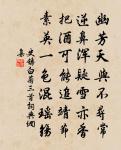 幽芳天與不尋常
逆鼻渾疑雪亦香
把酒可能追靖節
素英一色混瑤觴
史鑄白菊三首詞典網
集